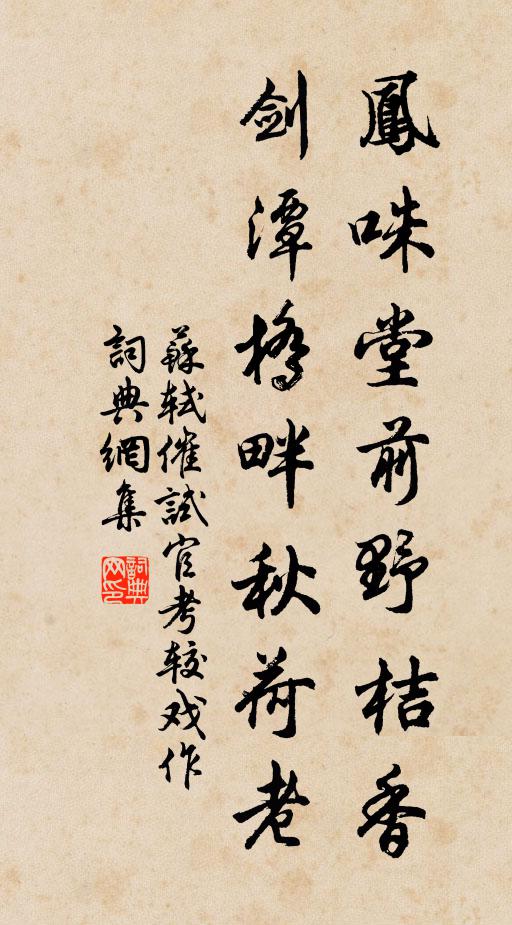 鳳咮堂前野桔香
劍潭橋畔秋荷老
蘇軾催試官考較戏作
詞典網集
詞典網印